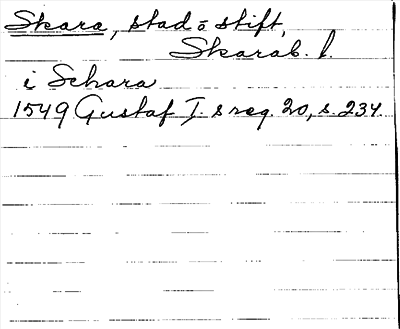 Skara, stad o stift,
Skarab. l.
i Schara
1549 Gustaf I. s reg. 20, s. 234.